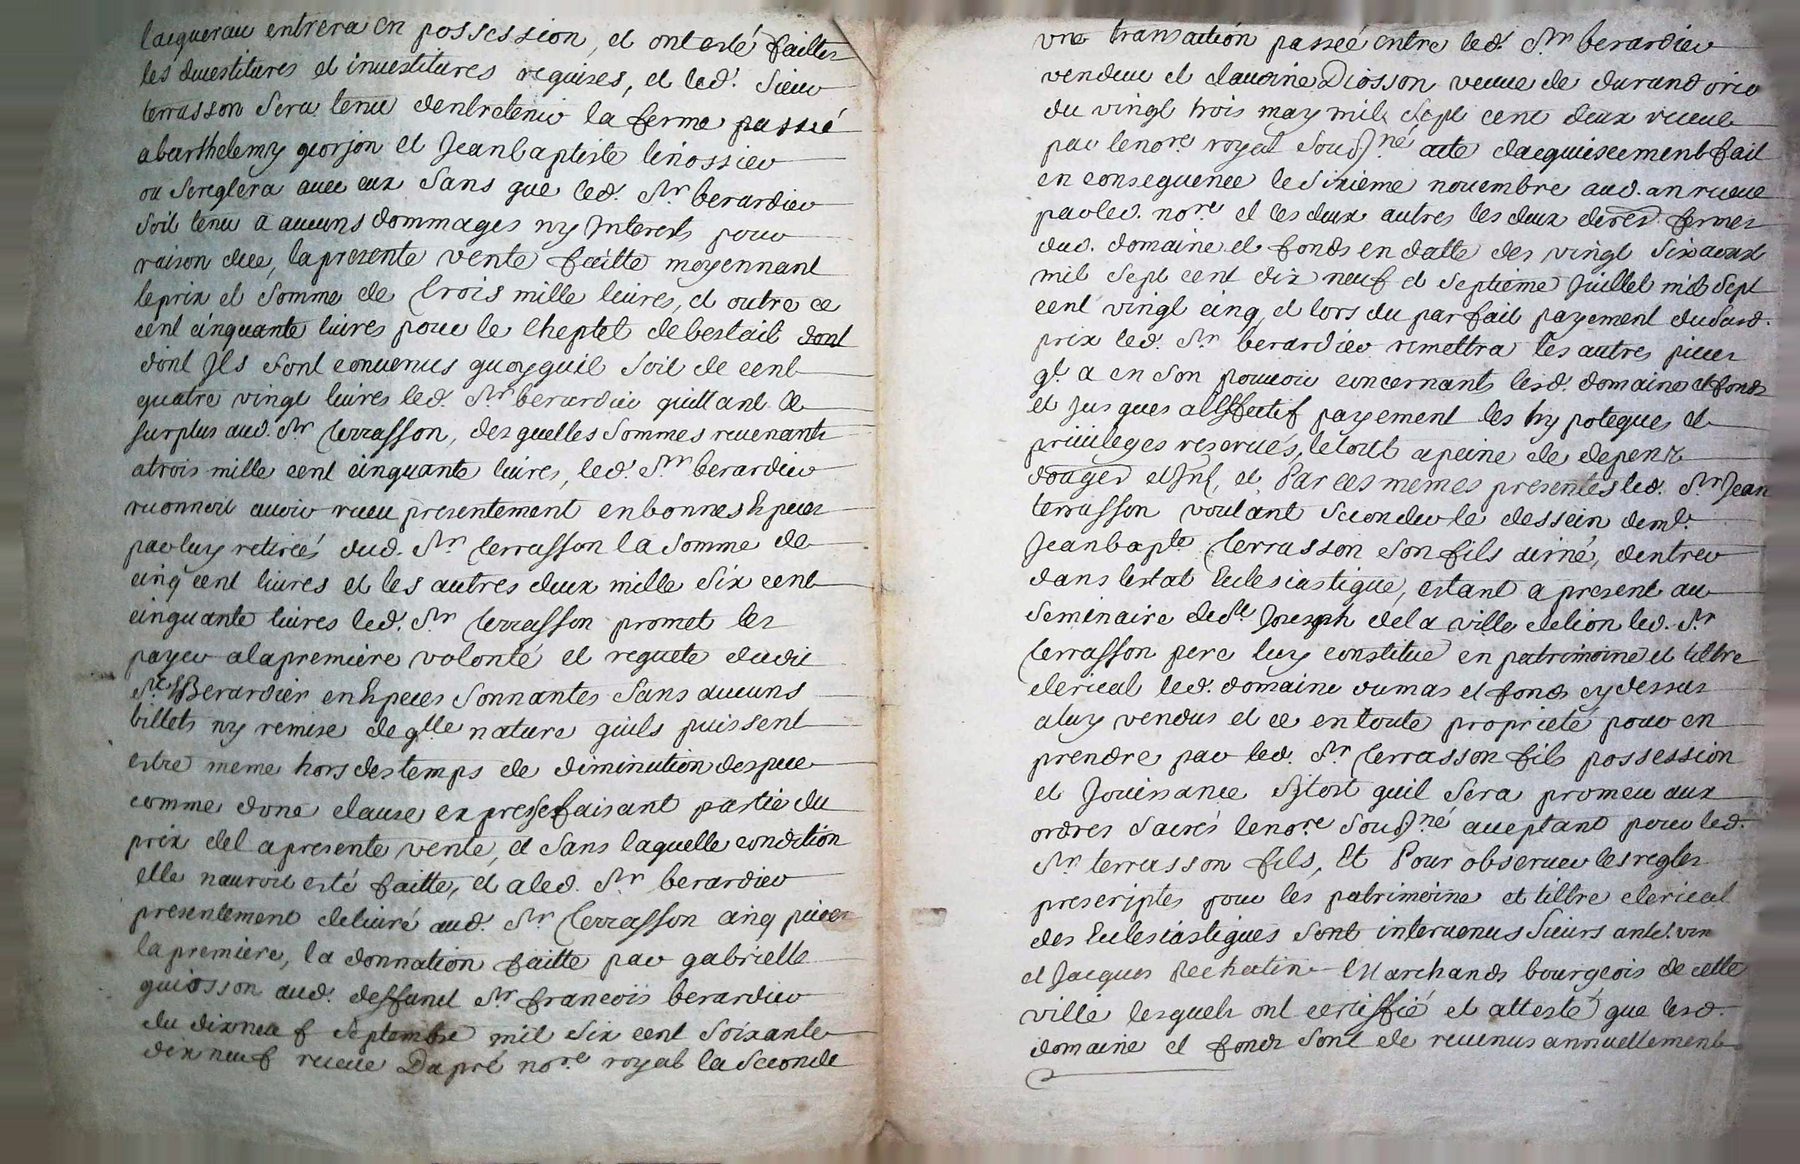 lacquerau entrera en possession, et ont esté faittes
les devestitures et investitures requises, et led. Sieur
terrasson sera tenu dentretenir la ferme passée
a barthelemy georjon et Jean baptiste
ou sereglera avec eux Sans que led. Sr berardier
soit tenu a aucuns dommages ny Interests pour
raison dice, la presente vente faitte moyennant
le prix et somme de trois mille livres, et outre ce
cent cinquante livres pour le Cheptel de bestail dont
dont Ils sont convenus quoyquil soit de cent
quatre vingt livres led. Sr berardier quittant le
surplus aud. Sr terrasson, desquelles sommes revenants
a trois mille cent cinquante livres, led. Sr berardier
reconnoit avoir receu presentement en bonnes Especes
par luy retirées dud. Sr terrasson la somme de
cinq cent livres et les autres deux mille six cent
cinquante livres led. Sr terrasson promet les
payer a la premiere volonté et requete dudit
Sr Berardier en Especes sonnantes sans aucuns
billets ny remise de qlle nature quils puissent
estre meme hors des temps de diminution despece
comme dune clause expresse faisant partie du
prix de la presente vente, et sans laquelle condition
elle nauroit esté faitte, et a led. Sr berardier
presentement delivré aud. Sr terrasson cinq pieces
la premiere, la donnation faitte par gabrielle
guiosson aud. deffunct Sr francois berardier
du dixneuf Septembre mil six cent soixante
dix neuf receue Dapré nore royal la seconde
une transaction passeé entre led. Sr berardier
vendeur et claudine Diosson veuve de durand oriol
du vingt trois may mil Sept cent deux receue
par lenore royal sousne acte dacquiescement fait
en consequence le Sixieme novembre aud. an receue
par led. nore et les deux autres les deux dres fermes
dud. domaine et fonds en datte des vingt Six aoust
mil sept cent dix neuf et septieme Juillet mil Sept
cent vingt cinq, et lors du parfait payement dususd.
prix led. Sr berardier remettra les autres pieces
ql a en son pouvoir concernants lesd. domaine et fonds
et Jusques a lEffectif payement les hypoteques et
privileges reservés, le tout a peine de depens
domages et Int, et Par ces memes presentes led. Sr Jean
terrasson voulant seconder le dessein de
Jean bapte terrasson son fils aisné, dentrer
dans lestat Eclesiastique, estant a present au
Seminaire de St Joseph de la ville de lion led. Sr
terrasson pere luy constitue en patrimoine et tiltre
clerical led. domaine dumas et fonds cy dessus
a luy vendus et ce en toute proprieté pour en
prendre par led. Sr terrasson fils possession
et Jouissance Sitost quil sera promeu aux
ordres sacrés lenore sousné acceptant pour led.
Sr terrasson fils, Et Pour observer les regles
prescriptes pour les patrimoine et tiltre clerical
des Eclesiastiques sont intervenus Sieurs
et Jacques pechatin Marchands bourgeois de cette
ville lesquels ont certiffié et attesté que lesd.
domaine et fonds sont de revenus annuellement